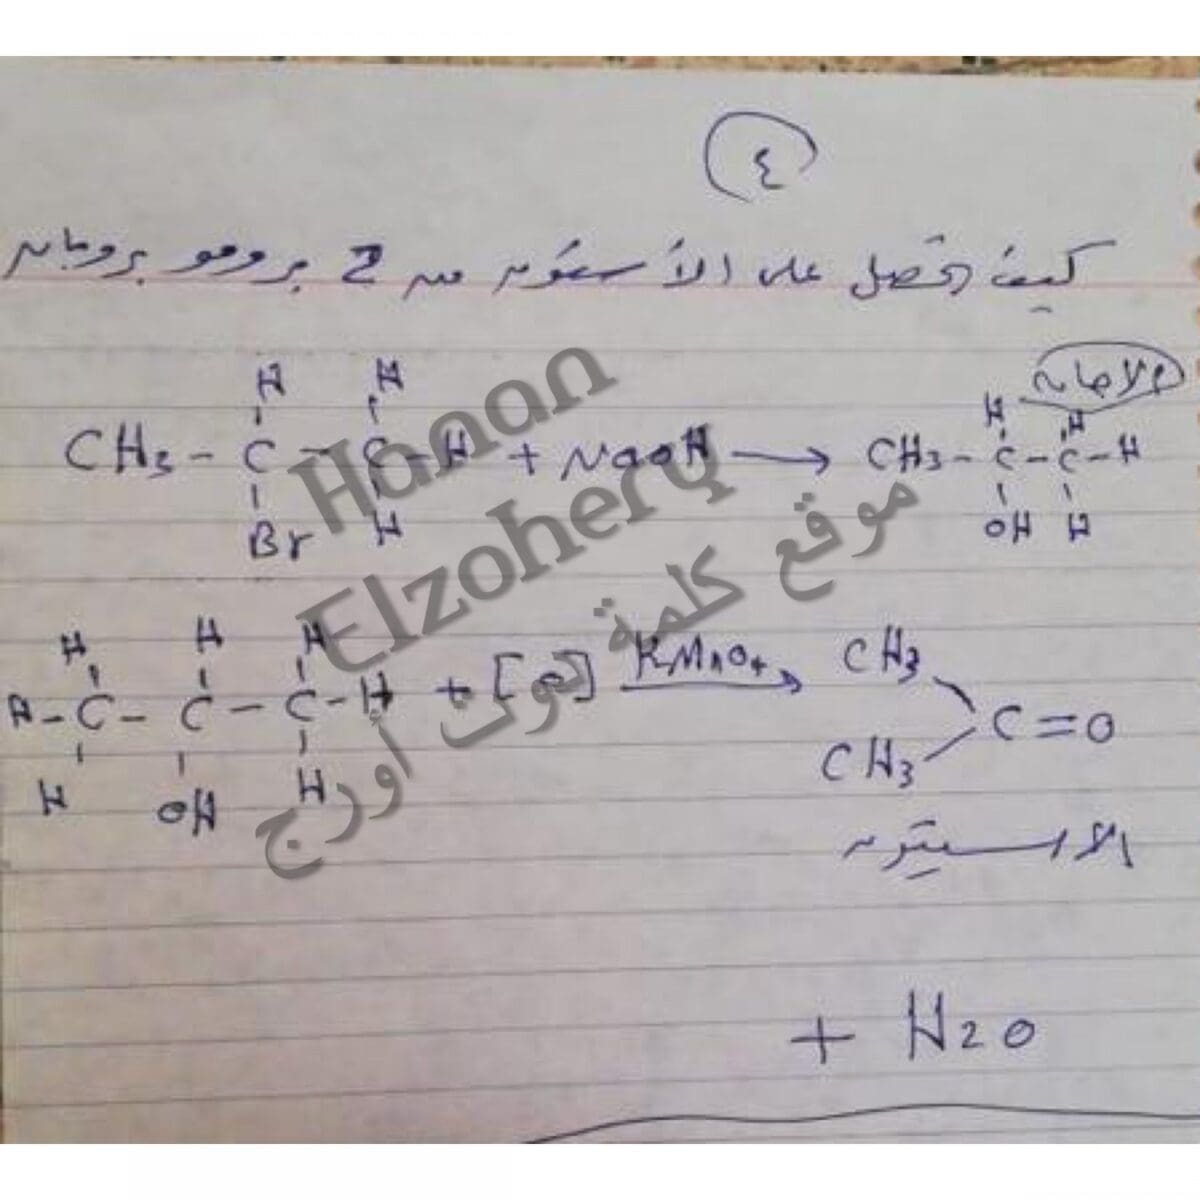 ٤
كيف تحصل على الأسيتون من 2 برومو بروبان
الإجابة
H H H H
CH3 - C - C - H + NaOH → CH3 - C - C - H
Br H OH H
H H H
H - C - C - C - H + [O] KMnO4 → CH3 CH3 C = O
H OH H
الاسيتون
+ H2O
Hanan
Elzohery
موقع كلمة دوت أورج